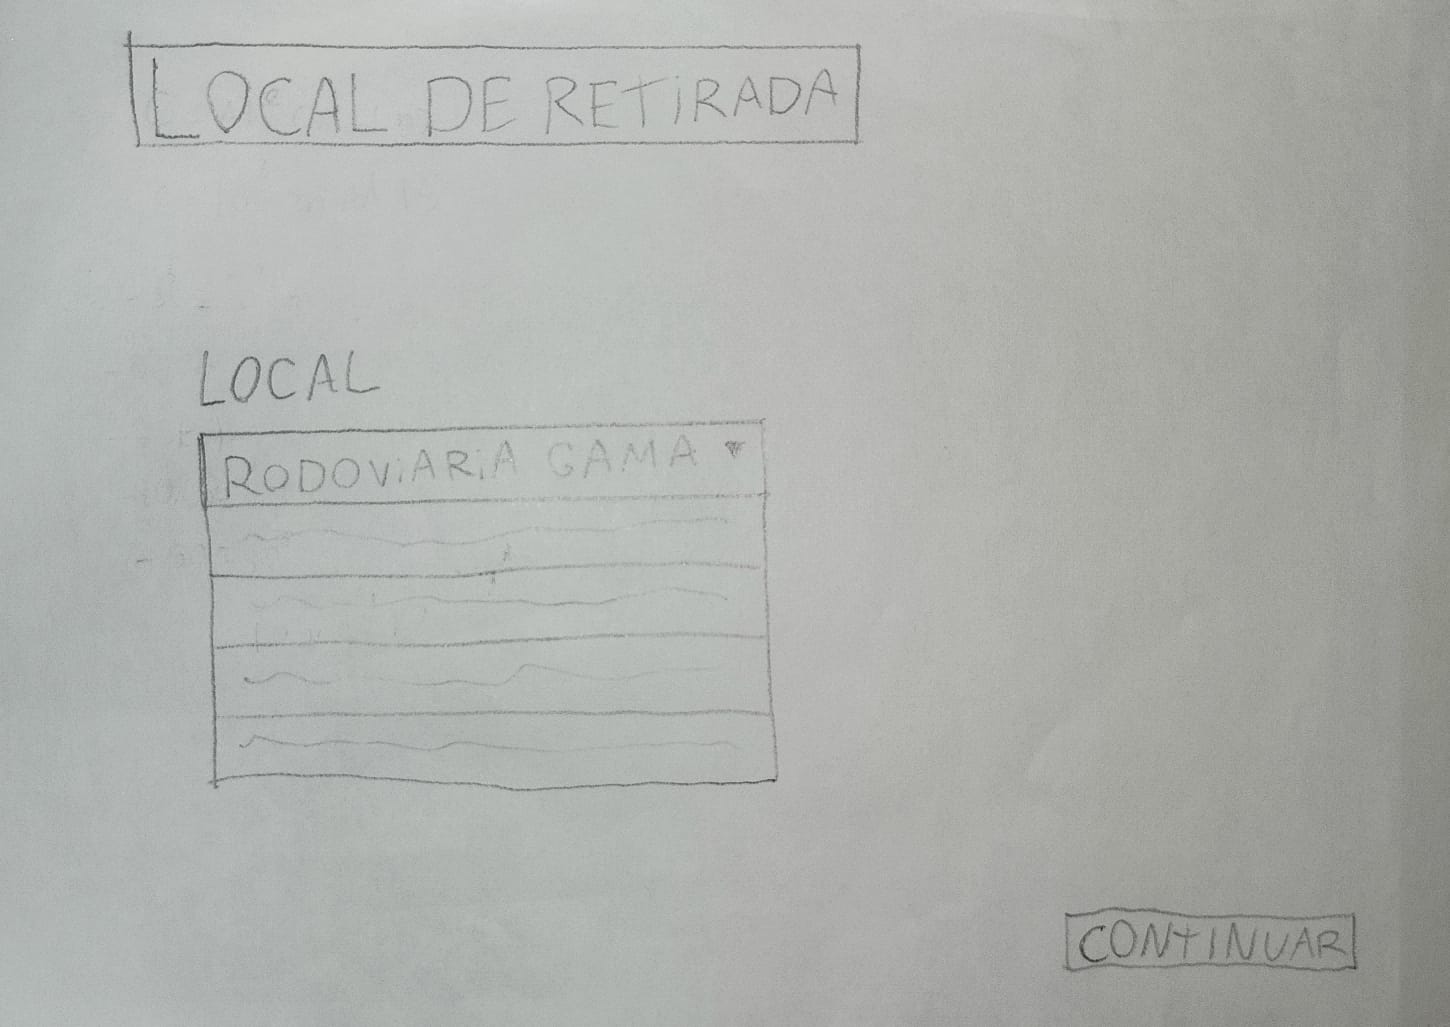 LOCAL DE RETIRADA
LOCAL
RODOVIARIA GAMA
CONTINUAR